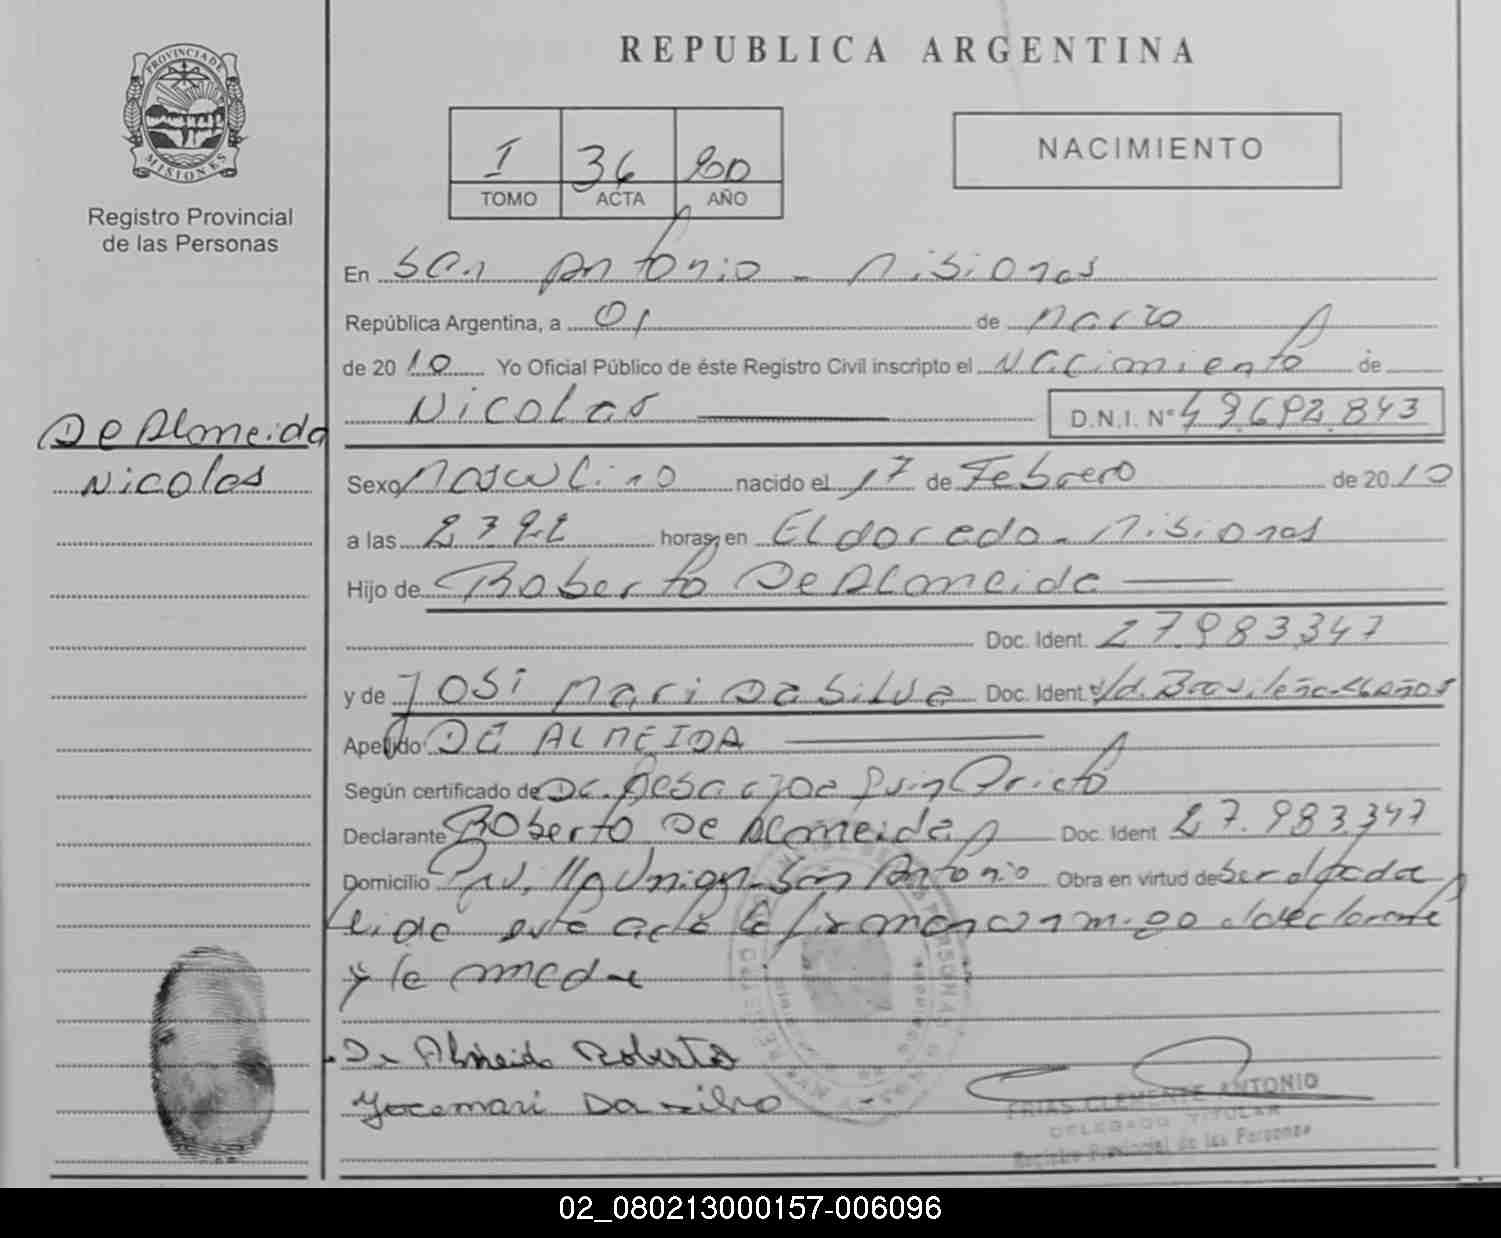 REPUBLICA ARGENTINA
PROVINCIA DE
MISIONES
Registro Provincial
de las Personas
I 36
TOMO ACTA AÑO
NACIMIENTO
En San Antonio - Misiones
República Argentina, a 01 de Marzo
de 2010 Yo Oficial Público de éste Registro Civil inscripto el Nacimiento de
Nicolas D.N.I. Nº 49.692.843
De Almeida
Nicolas
Sexo Masculino nacido el 17 de Febrero de 2010
a las horas, en Eldorado - Misiones
Hijo de Roberto De Almeida
Doc. Ident. 27.983.347
y de Josi Mari Da Silva Doc. Ident. Brasileña
Apellido DE ALMEIDA
Según certificado de
Declarante Roberto De Almeida Doc. Ident 27.983.347
Domicilio Union - San Antonio Obra en virtud de
leida este acta la firman conmigo el declarante
y la madre
De Almeida Roberto
Yocemari Da silva
FRIAS CLEMENTE ANTONIO
DELEGADO TITULAR
Registro Provincial de las Personas
02_080213000157-006096